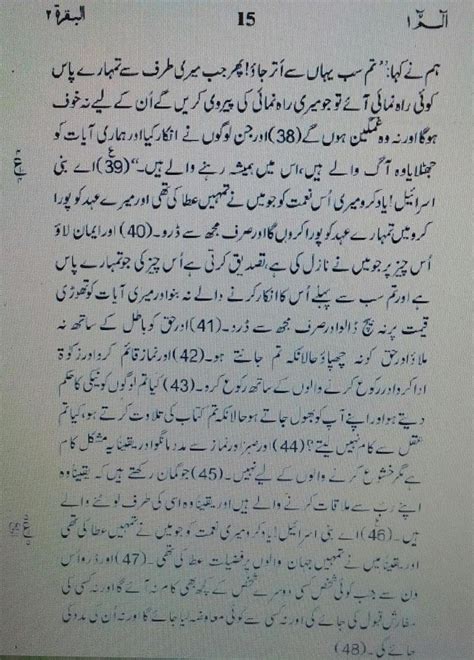 البقرة ۲ 15 الٓـمّٓ ۱
ہم نے کہا: ”تم سب یہاں سے اُتر جاؤ! پھر جب میری طرف سے تمہارے پاس
کوئی راہ نمائی آئے تو جو میری راہ نمائی کی پیروی کریں گے اُن کے لیے نہ خوف
ہوگا اور نہ وہ غمگین ہوں گے (38) اور جن لوگوں نے انکار کیا اور ہماری آیات کو
جھٹلایا وہ آگ والے ہیں، اس میں ہمیشہ رہنے والے ہیں۔“ (39) اے بنی
اسرائیل! یاد کرو میری اُس نعمت کو جو میں نے تمہیں عطا کی تھی اور میرے عہد کو پورا
کرو میں تمہارے عہد کو پورا کروں گا اور صرف مجھ سے ڈرو۔ (40) اور ایمان لاؤ
اُس چیز پر جو میں نے نازل کی ہے، تصدیق کرتی ہے اُس چیز کی جو تمہارے پاس
ہے اور تم سب سے پہلے اُس کا انکار کرنے والے نہ بنو اور میری آیات کو تھوڑی
قیمت پر نہ بیچ ڈالو اور صرف مجھ سے ڈرو۔ (41) اور حق کو باطل کے ساتھ نہ
ملاؤ اور حق کو نہ چھپاؤ حالانکہ تم جانتے ہو۔ (42) اور نماز قائم کرو اور زکوٰۃ
ادا کرو اور رکوع کرنے والوں کے ساتھ رکوع کرو۔ (43) کیا تم لوگوں کو نیکی کا حکم
دیتے ہو اور اپنے آپ کو بھول جاتے ہو حالانکہ تم کتاب کی تلاوت کرتے ہو، کیا تم
عقل سے کام نہیں لیتے؟ (44) اور صبر اور نماز سے مدد مانگو اور یقیناً یہ مشکل کام
ہے مگر خشوع کرنے والوں کے لیے نہیں۔ (45) جو گمان رکھتے ہیں کہ یقیناً وہ
اپنے رب سے ملاقات کرنے والے ہیں اور یقیناً وہ اسی کی طرف لوٹنے والے
ہیں۔ (46) اے بنی اسرائیل! یاد کرو میری نعمت کو جو میں نے تمہیں عطا کی تھی
اور یقیناً میں نے تمہیں جہان والوں پر فضیلت عطا کی تھی۔ (47) اور ڈرو اُس
دن سے جب کوئی شخص کسی دوسرے شخص کے کچھ بھی کام نہ آئے گا اور نہ کسی کی
سفارش قبول کی جائے گی اور نہ کسی سے کوئی معاوضہ لیا جائے گا اور نہ اُن کی مدد کی
جائے گی۔ (48)